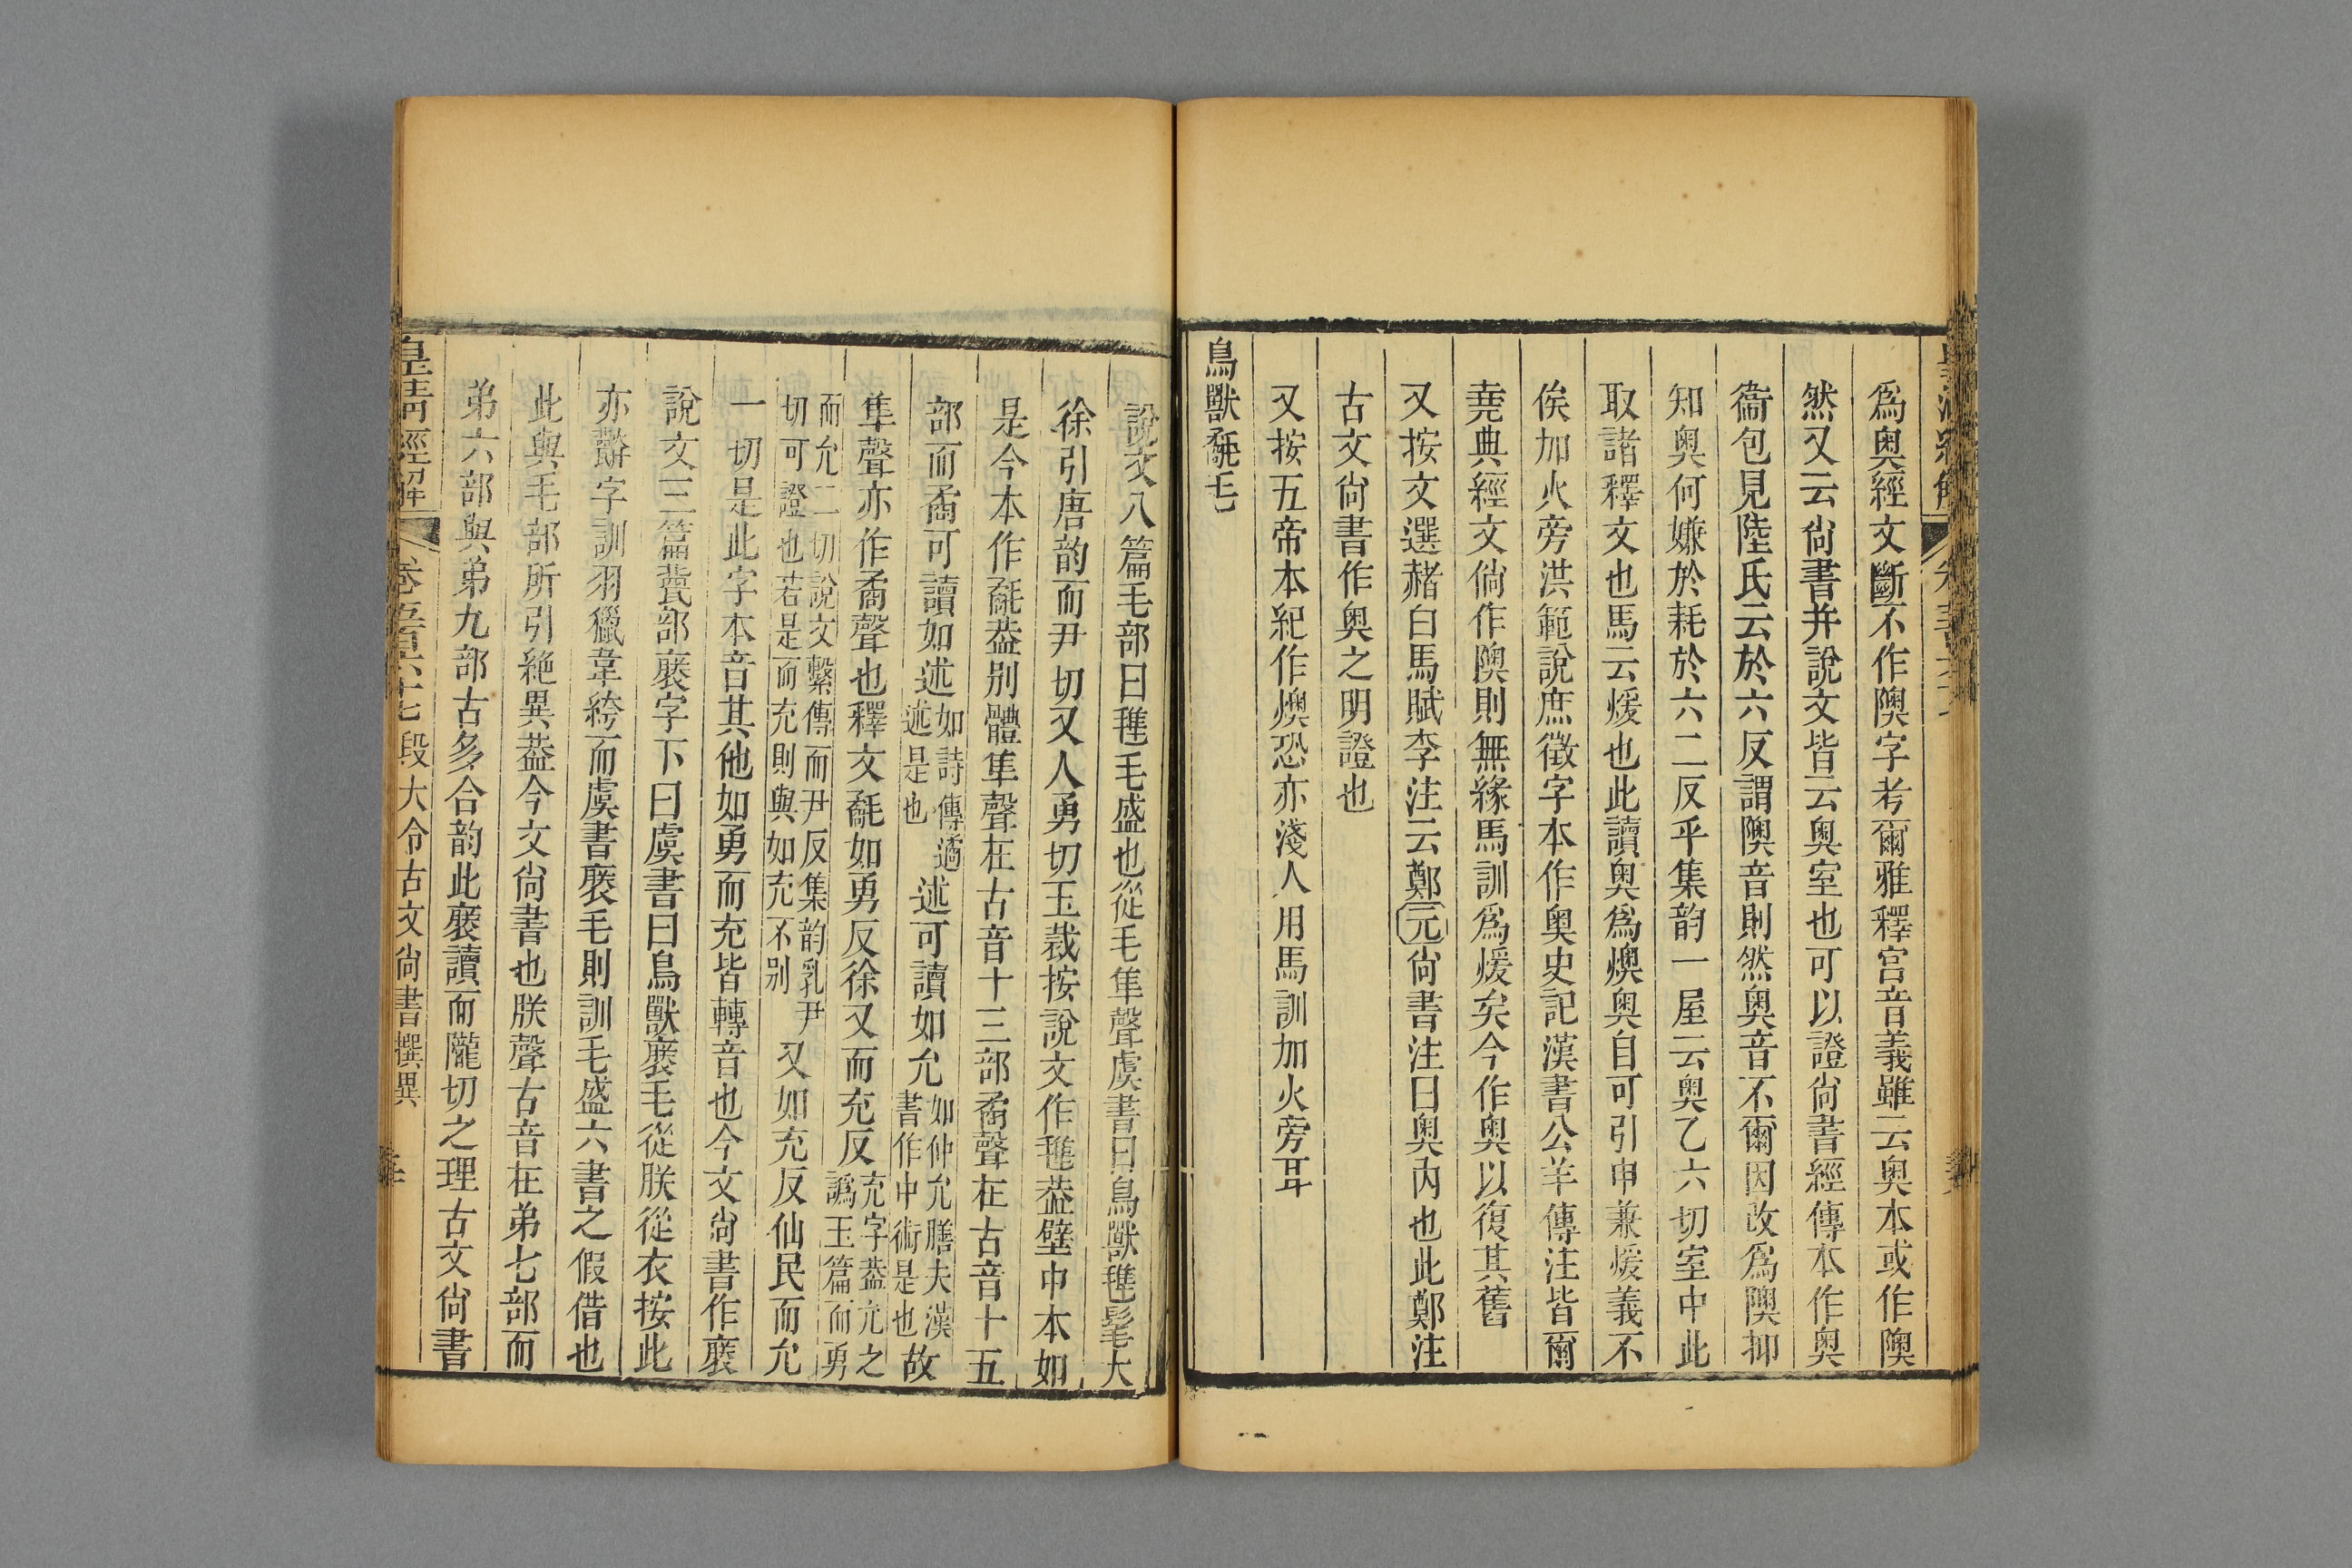 為奧經文斷不作隩字考爾雅釋宮音義雖云奧本或作隩
然又云尙書并說文皆云奧室也可以證尙書經傳本作奧
衞包見陸氏云於六反謂隩音則然奧音不爾因改為隩抑
知奧何嫌於耗於六二反乎集韵一屋云奧乙六切室中此
取諸釋文也馬云煖也此讀奧為燠奧自可引申兼煖義不
俟加火旁洪範說庶徵字本作奧史記漢書公羊傳注皆爾
堯典經文倘作隩則無緣馬訓為煖矣今作奧以復其舊
又按文選赭白馬賦李注云鄭元尙書注曰奧內也此鄭注
古文尙書作奧之明證也
又按五帝本紀作燠恐亦淺人用馬訓加火旁耳
鳥獸氄毛
說文八篇毛部曰𣯍毛盛也從毛隼聲虞書曰鳥獸𣯍髦大
徐引唐韵而尹切又人勇切玉裁按說文作𣯍葢壁中本如
是今本作氄葢別體隼聲在古音十三部矞聲在古音十五
部而矞可讀如述如詩傳遹述是也述可讀如允如仲允膳夫漢書作中術是也故
隼聲亦作矞聲也釋文氄如勇反徐又而充反充字葢允之譌玉篇而勇
而允二切說文繫傳而尹反集韵乳尹切可證也若是而充則與如充不別又如充反仙民而允
一切是此字本音其他如勇而充皆轉音也今文尙書作褎
說文三篇㼱部褎字下曰虞書曰鳥獸褎毛從朕從衣按此
亦㼱字訓羽獵韋絝而虞書褎毛則訓毛盛六書之假借也
此與毛部所引絕異葢今文尙書也朕聲古音在弟七部而
弟六部與弟九部古多合韵此褎讀而隴切之理古文尙書
皇淸經解 卷五百六十七 段大令古文尙書撰異